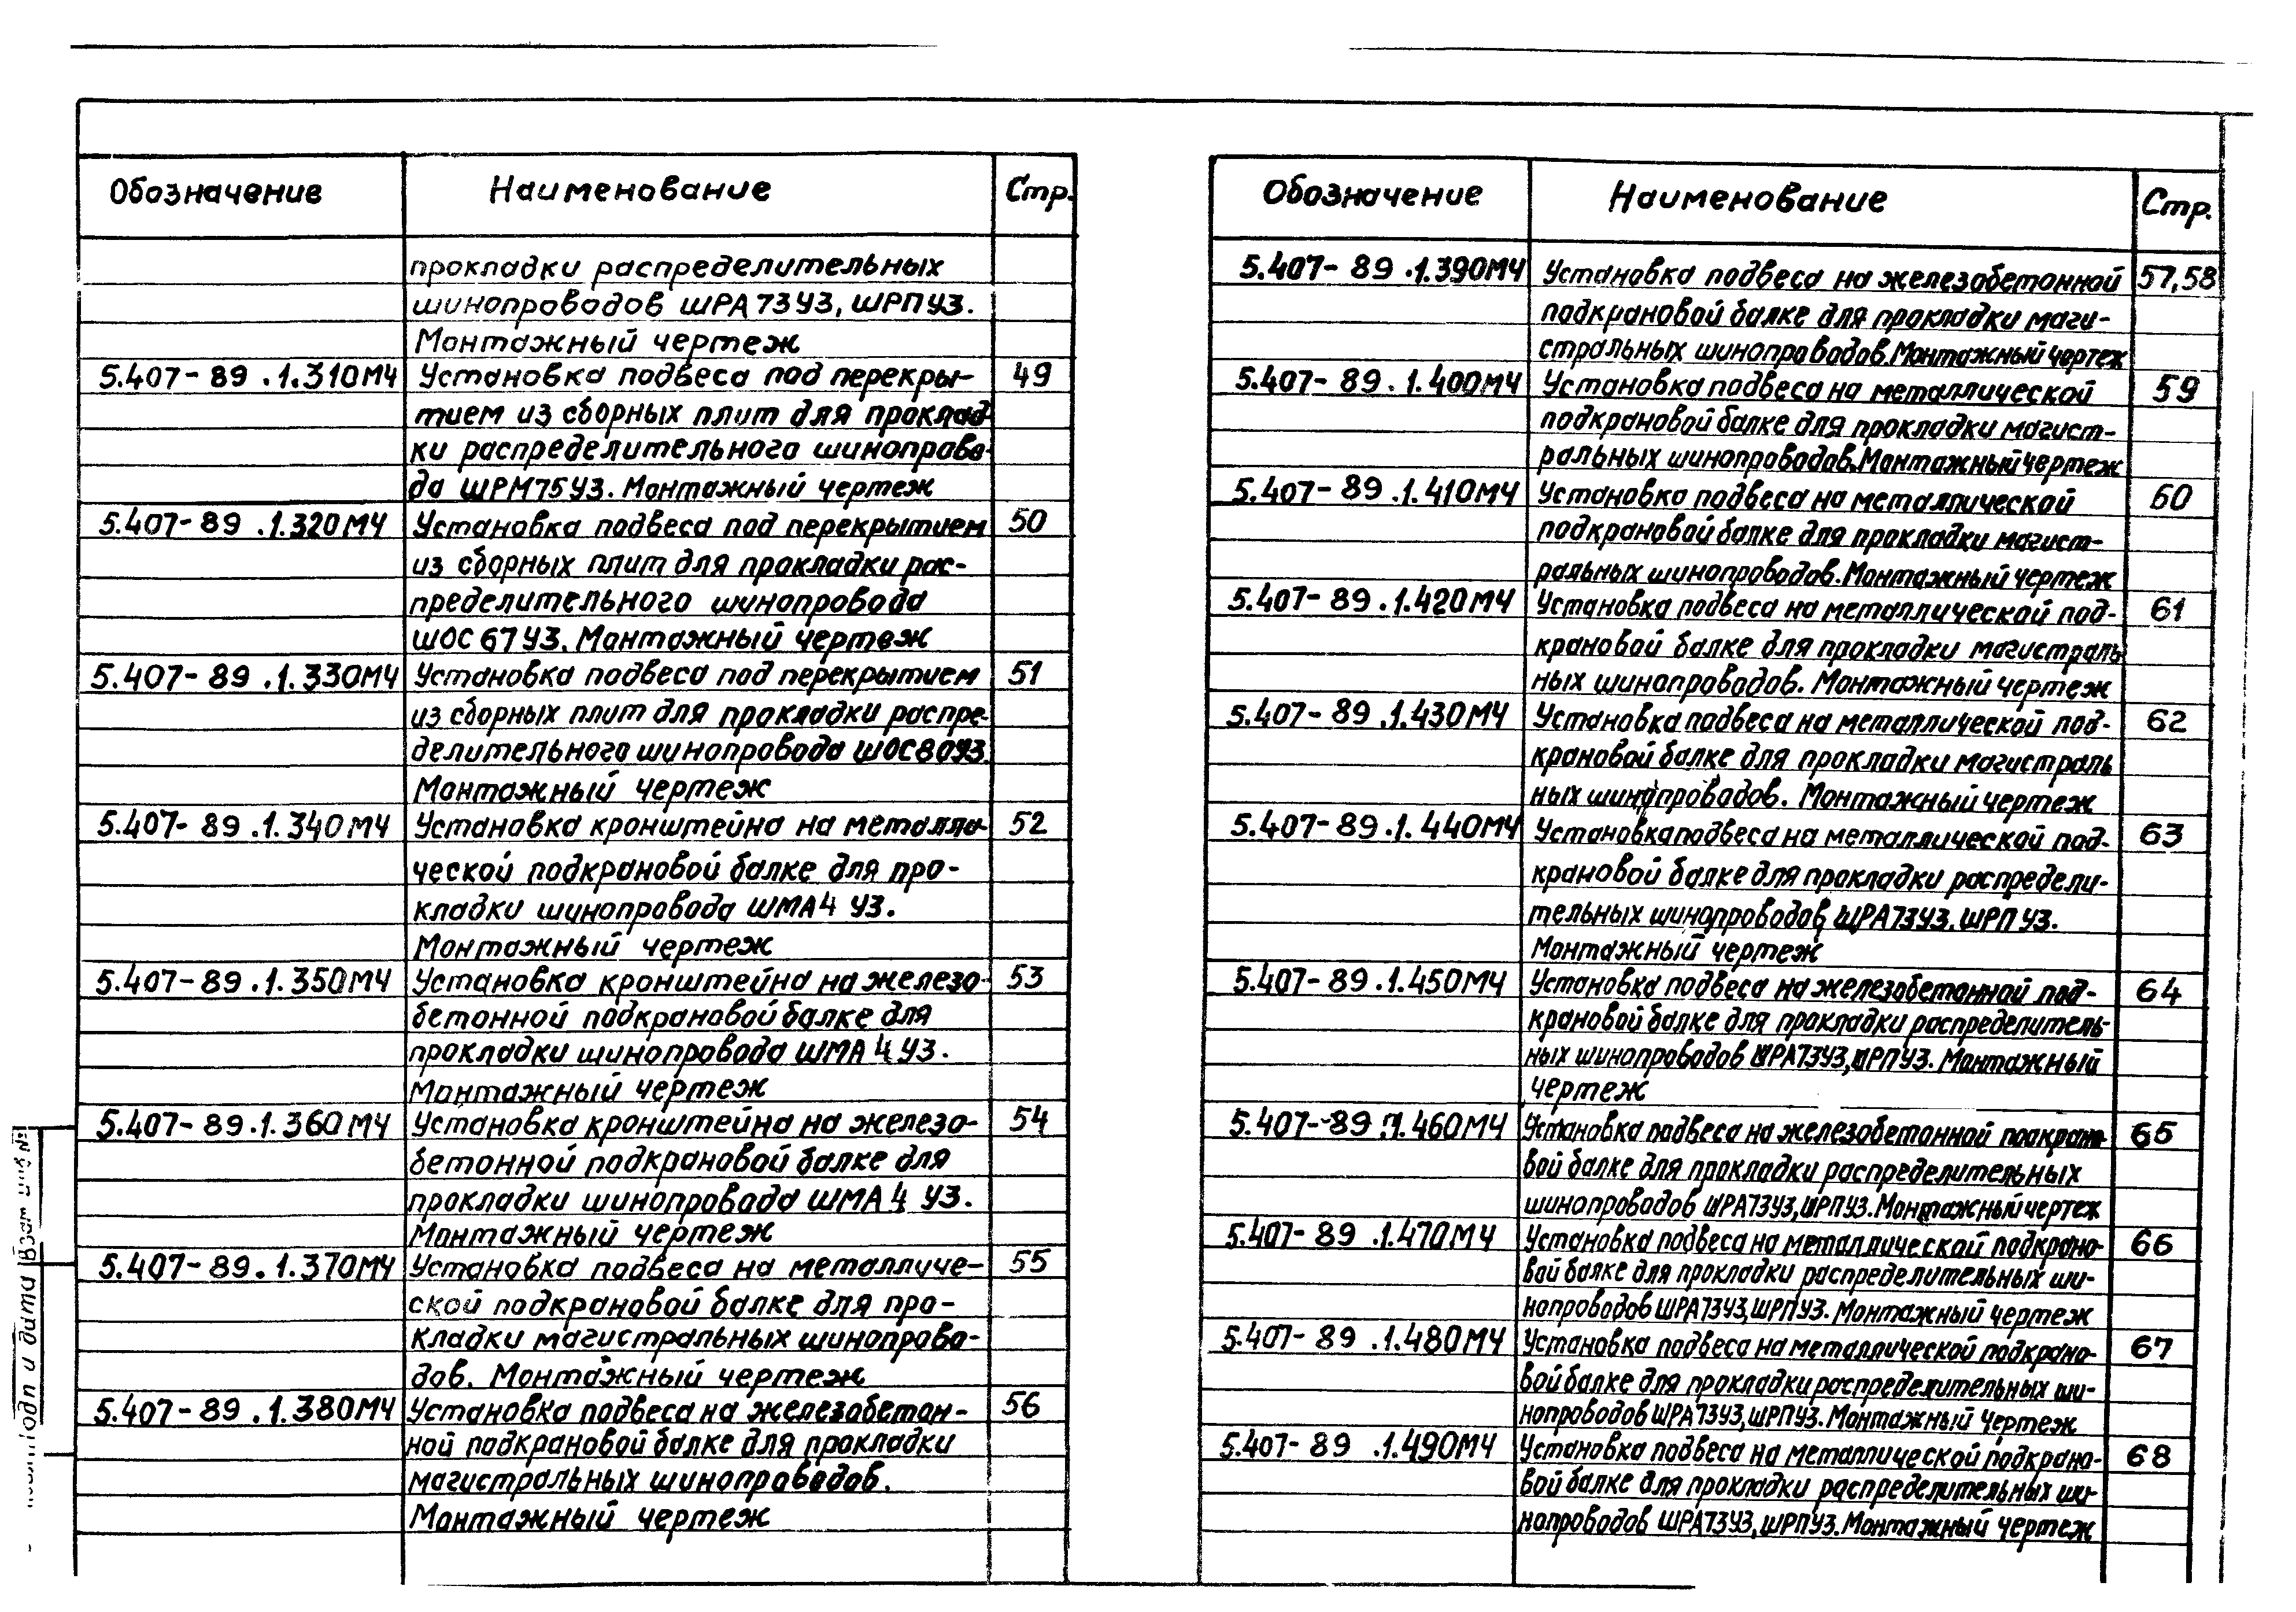 Обозначение Наименование Стр.
прокладки распределительных
шинопроводов ШРА73У3, ШРПУ3.
Монтажный чертеж
5.407-89.1.310МЧ Установка подвеса под перекры- 49
тием из сборных плит для проклад-
ки распределительного шинопрово-
да ШРМ75У3. Монтажный чертеж
5.407-89.1.320МЧ Установка подвеса под перекрытием 50
из сборных плит для прокладки рас-
пределительного шинопровода
ШОС67У3. Монтажный чертеж
5.407-89.1.330МЧ Установка подвеса под перекрытием 51
из сборных плит для прокладки распре-
делительного шинопровода ШОС80У3.
Монтажный чертеж
5.407-89.1.340МЧ Установка кронштейна на металли- 52
ческой подкрановой балке для про-
кладки шинопровода ШМА4 У3.
Монтажный чертеж
5.407-89.1.350МЧ Установка кронштейна на железо- 53
бетонной подкрановой балке для
прокладки шинопровода ШМА4 У3.
Монтажный чертеж
5.407-89.1.360МЧ Установка кронштейна на железо- 54
бетонной подкрановой балке для
прокладки шинопровода ШМА4 У3.
Монтажный чертеж
5.407-89.1.370МЧ Установка подвеса на металличе- 55
ской подкрановой балке для про-
кладки магистральных шинопрово-
дов. Монтажный чертеж
5.407-89.1.380МЧ Установка подвеса на железобетон- 56
ной подкрановой балке для прокладки
магистральных шинопроводов.
Монтажный чертеж
Обозначение Наименование Стр.
5.407-89.1.390МЧ Установка подвеса на железобетонной 57,58
подкрановой балке для прокладки маги-
стральных шинопроводов. Монтажный чертеж
5.407-89.1.400МЧ Установка подвеса на металлической 59
подкрановой балке для прокладки магист-
ральных шинопроводов. Монтажный чертеж
5.407-89.1.410МЧ Установка подвеса на металлической 60
подкрановой балке для прокладки магист-
ральных шинопроводов. Монтажный чертеж
5.407-89.1.420МЧ Установка подвеса на металлической под- 61
крановой балке для прокладки магистраль
ных шинопроводов. Монтажный чертеж
5.407-89.1.430МЧ Установка подвеса на металлической под- 62
крановой балке для прокладки магистраль
ных шинопроводов. Монтажный чертеж
5.407-89.1.440МЧ Установка подвеса на металлической под- 63
крановой балке для прокладки распредели-
тельных шинопроводов ШРА73У3. ШРП У3.
Монтажный чертеж
5.407-89.1.450МЧ Установка подвеса на железобетонной под- 64
крановой балке для прокладки распределитель-
ных шинопроводов ШРА73У3, ШРПУ3. Монтажный
чертеж
5.407-89.1.460МЧ Установка подвеса на железобетонной подкрано- 65
вой балке для прокладки распределительных
шинопроводов ШРА73У3, ШРПУ3. Монтажный чертеж
5.407-89.1.470МЧ Установка подвеса на металлической подкрано- 66
вой балке для прокладки распределительных ши-
нопроводов ШРА73У3, ШРПУ3. Монтажный чертеж
5.407-89.1.480МЧ Установка подвеса на металлической подкрано- 67
вой балке для прокладки распределительных ши-
нопроводов ШРА73У3, ШРПУ3. Монтажный чертеж
5.407-89.1.490МЧ Установка подвеса на металлической подкрано- 68
вой балке для прокладки распределительных ши-
нопроводов ШРА73У3, ШРПУ3. Монтажный чертеж
Подп и дата